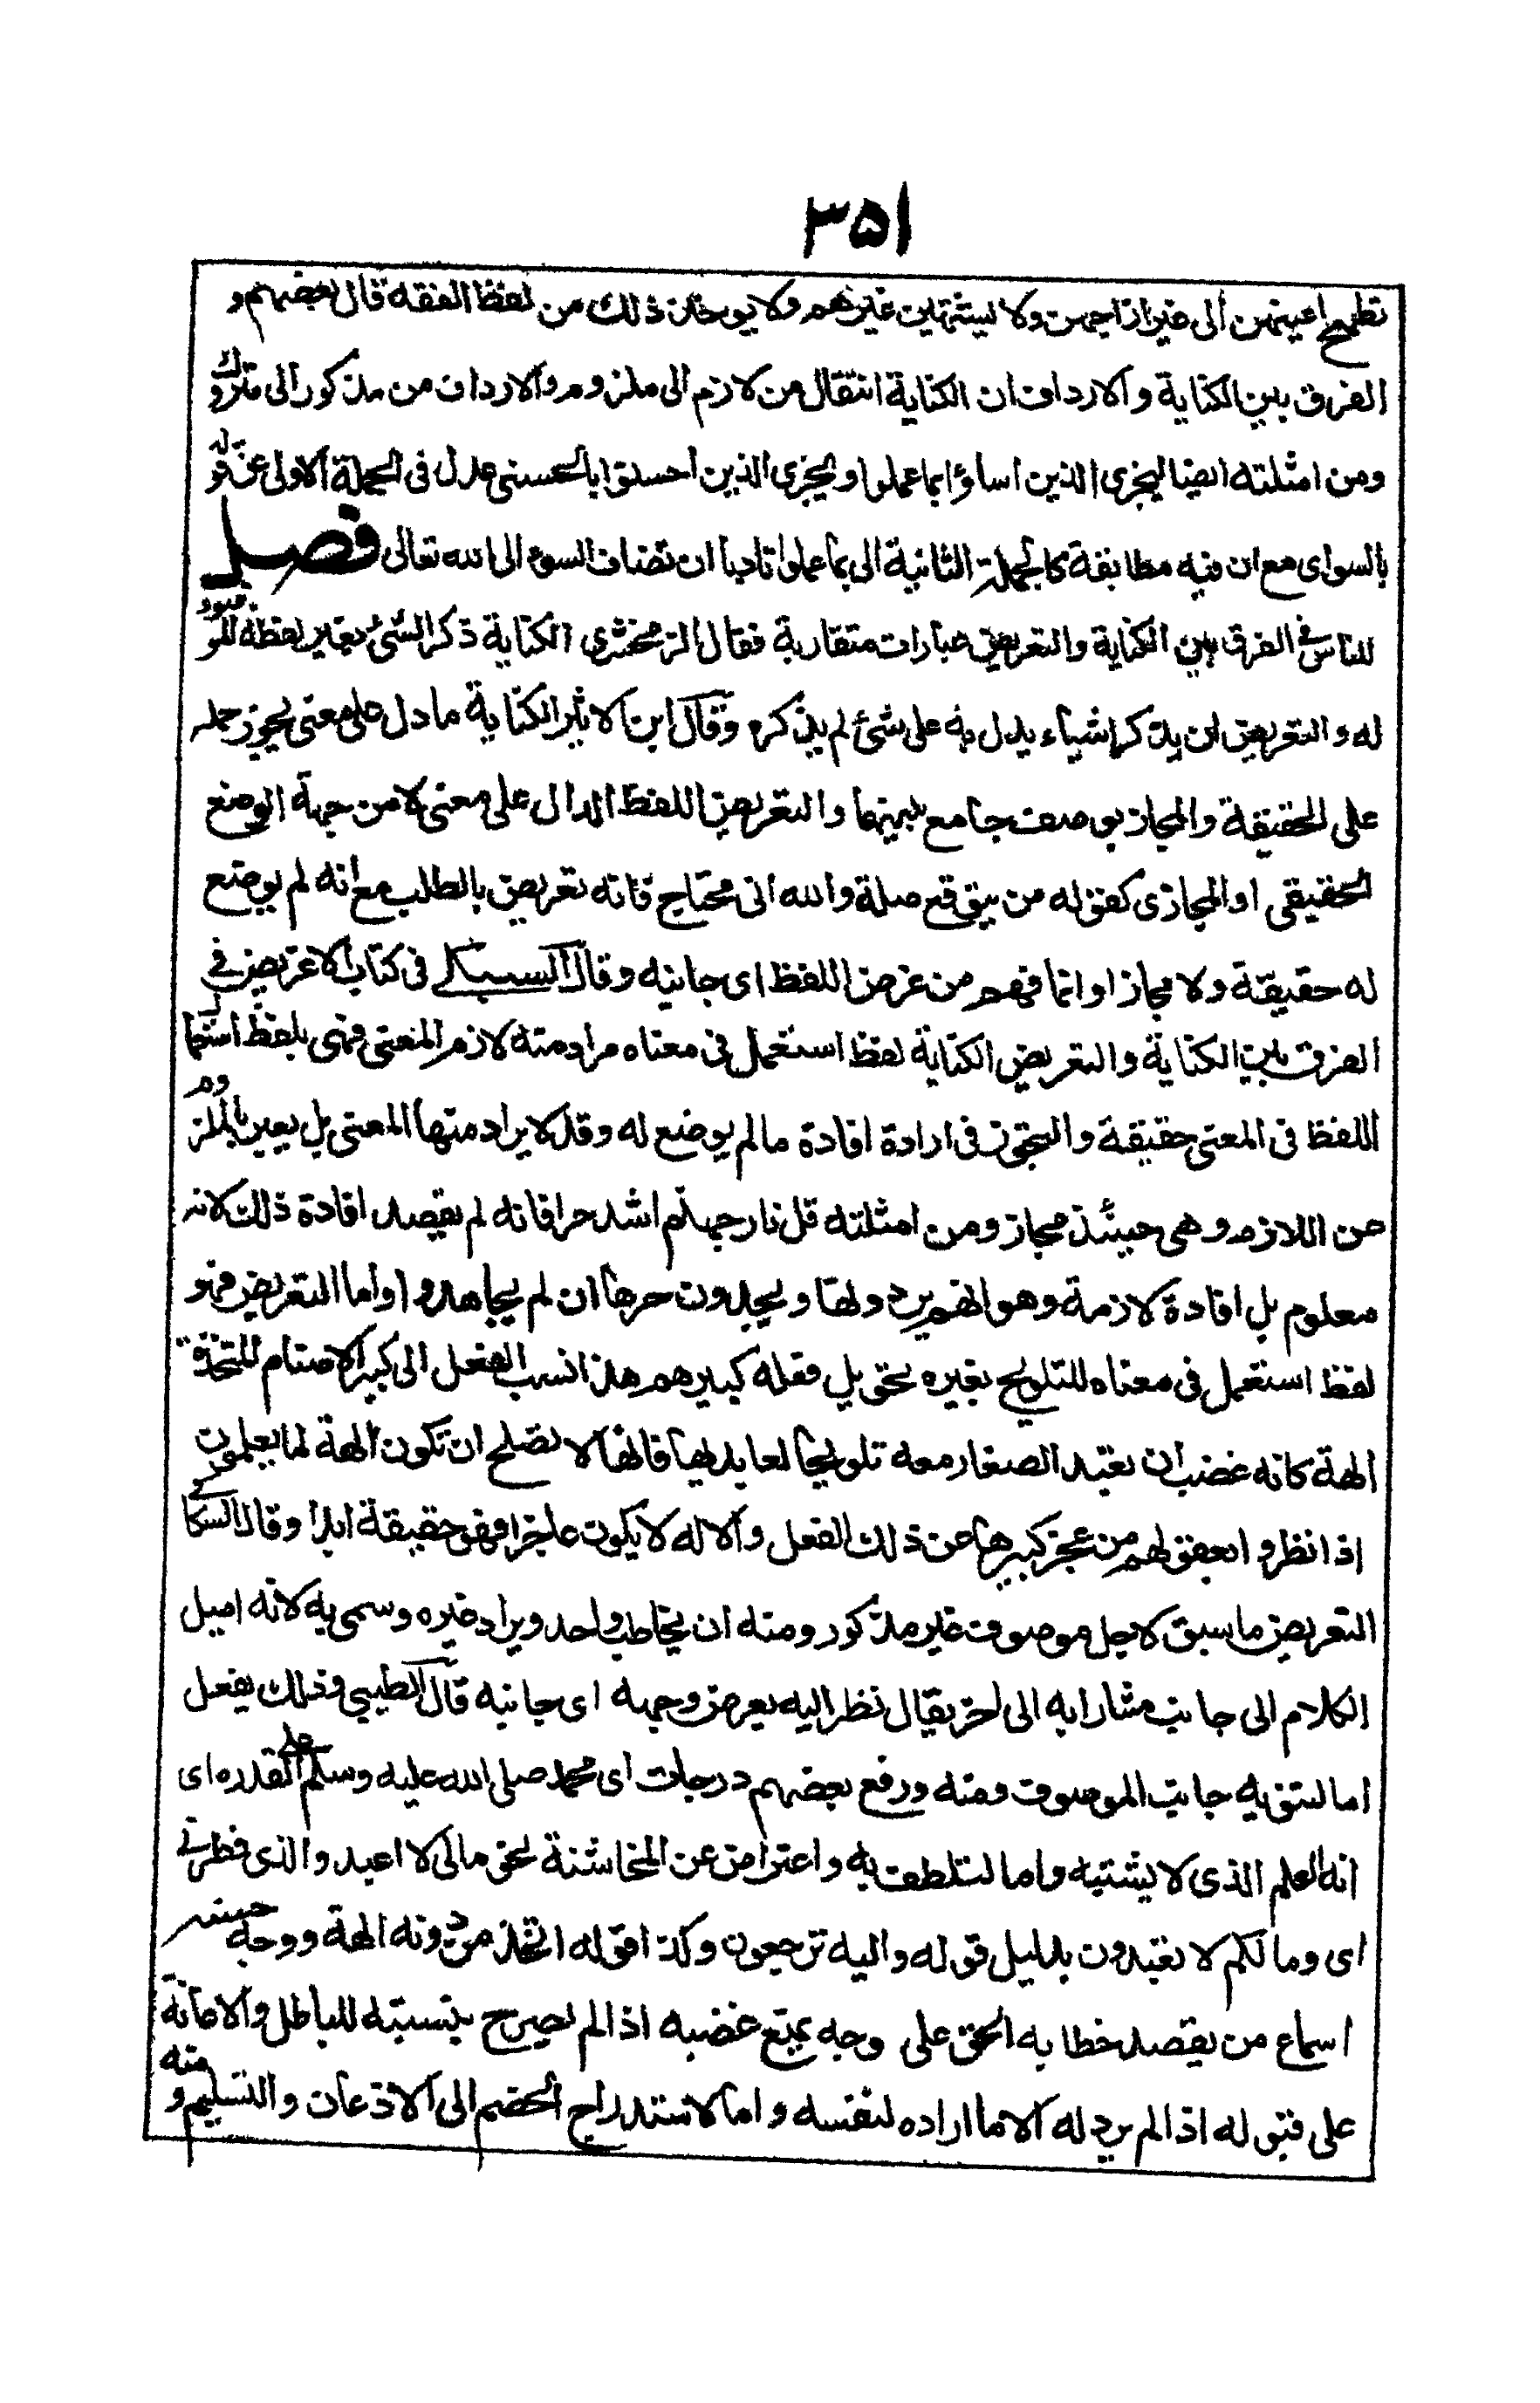 ٣٥١
تطمح اعينهن الى غير ازواجهن ولا يشتهين غيرهم ولا يوخذ ذلك من لفظ العفة قال بعضهم و
الفرق بين الكناية والارداف ان الكناية انتقال من لازم الى ملزوم والارداف من مذكور الى متروك
ومن امثلته ايضا ليجزى الذين اساؤا بما عملوا ويجزى الذين احسنوا بالحسنى عدل فى الجملة الاولى عن قوله
بالسواى مع ان فيه مطابقة كالجملة الثانية الى بما عملوا تادبا ان تضاف السوء الى الله تعالى فصل
للناس فى الفرق بين الكناية والتعريض عبارات متقاربة فقال الزمخشرى الكناية ذكر الشئ بغير لفظه الموضوع
له والتعريض ان يذكر اشياء يدل به على شئ لم يذكره وقال ابن الاثير الكناية ما دل على معنى يجوز حمله
على الحقيقة والمجاز بوصف جامع بينهما والتعريض اللفظ الدال على معنى لا من جهة الوضع
الحقيقى او المجازى كقوله من يتوقع صلة والله انى محتاج فانه تعريض بالطلب مع انه لم يوضع
له حقيقة ولا مجازا وانما فهم من عرض اللفظ اى جانبه وقال السبكى فى كتاب الاغريض فى
الفرق بين الكناية والتعريض الكناية لفظ استعمل فى معناه مرادمنه لازم المعنى فهى بلفظ استعمال
اللفظ فى المعنى حقيقة والتجوز فى ارادة افادة مالم يوضع له وقد لا يراد منها المعنى بل يعبر بالملزوم
عن اللازم وهى حينئذ مجاز ومن امثلته قل نار جهنم اشد حرا فانه لم يقصد افادة ذلك لانه
معلوم بل افادة لازمة وهو انهم يردونها ويجدون حرها ان لم يجاهدوا واما التعريض فهو
لفظ استعمل فى معناه للتلويح بغيره نحو بل فعله كبيرهم هذا نسب الفعل الى كبير الاصنام المتخذة
الهة كانه غضب ان تعبد الصغار معه تلويحا لعابديها فانها لا تصلح ان تكون الهة لما يعلمون
اذا نظروا بعقولهم من عجز كبيرها عن ذلك الفعل والاله لا يكون عاجزا فهو حقيقة ابدا وقال السكاكى
التعريض ما سبق لاجل موصوف غير مذكور ومنه ان يخاطب واحد ويراد غيره وسمى به لانه اميل
الكلام الى جانب مشارا به الى اخر يقال نظر اليه بعرض وجهه اى جانبه قال الطيبى وذلك يفعل
اما لتنويه جانب الموصوف ومنه ورفع بعضهم درجات اى محمد صلى الله عليه وسلم اعلى لقدره اى
انه العلم الذى لا يشتبه واما لتلطف به واعتراض عن المخاشنة نحو مالى لا اعبد والذى فطرنى
اى وما لكم لا تعبدون بدليل قوله واليه ترجعون وكذا قوله اتخذ من دونه الهة ووجه حسنه
اسماع من يقصد خطابه الحق على وجه يمنع غضبه اذا لم يصرح بنسبته للباطل والاعانة
على قبوله اذا لم يرد له الا ما اراده لنفسه واما لاستدراج الخصم الى الاذعان والتسليم ومنه